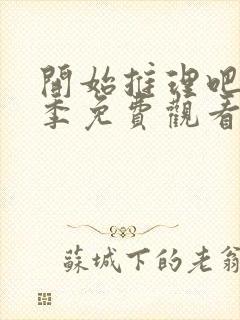 開始推理吧
季免費觀看
蘇城下的老翁